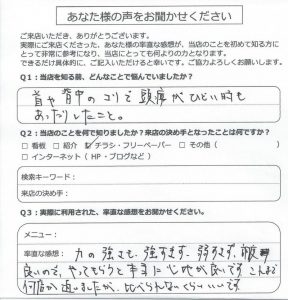 あなた様の声をお聞かせください
ご来店いただき、ありがとうございます。
実際にご来店くださった、あなた様の率直な感想が、当店のことを初めて知る方に
とって非常に参考になり、当店にとっても何よりの力となります。
できるだけ具体的に、ご記入いただけると幸いです。ご協力よろしくお願いします。
Q1：当店を知る前、どんなことで悩んでいましたか？
首や背中のコリで頭痛がひどい時も
あったりしたこと。
Q2：当店のことを何で知りましたか？来店の決め手となったことは何ですか？
□ 看板 □ 紹介 ☑ チラシ・フリーペーパー □ その他（ ）
□ インターネット（ HP・ブログなど ）
検索キーワード：
来店の決め手：
Q3：実際に利用された、率直な感想をお聞かせください。
メニュー：
率直な感想： 力の強さも、強すぎず、弱すぎず、
良いので、やってもらうと本当に心地が良いです こんまで
何店か通いましたが、比べられないくらいいいです